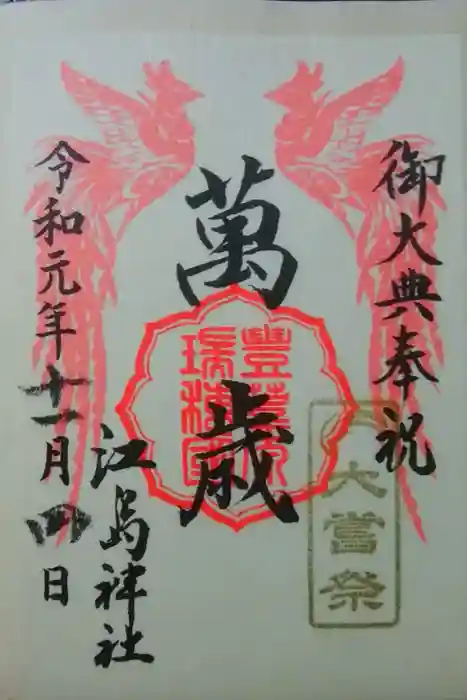 御大典奉祝
萬歳
豊葦原
瑞穂國
大嘗祭
江島神社
令和元年十一月四日